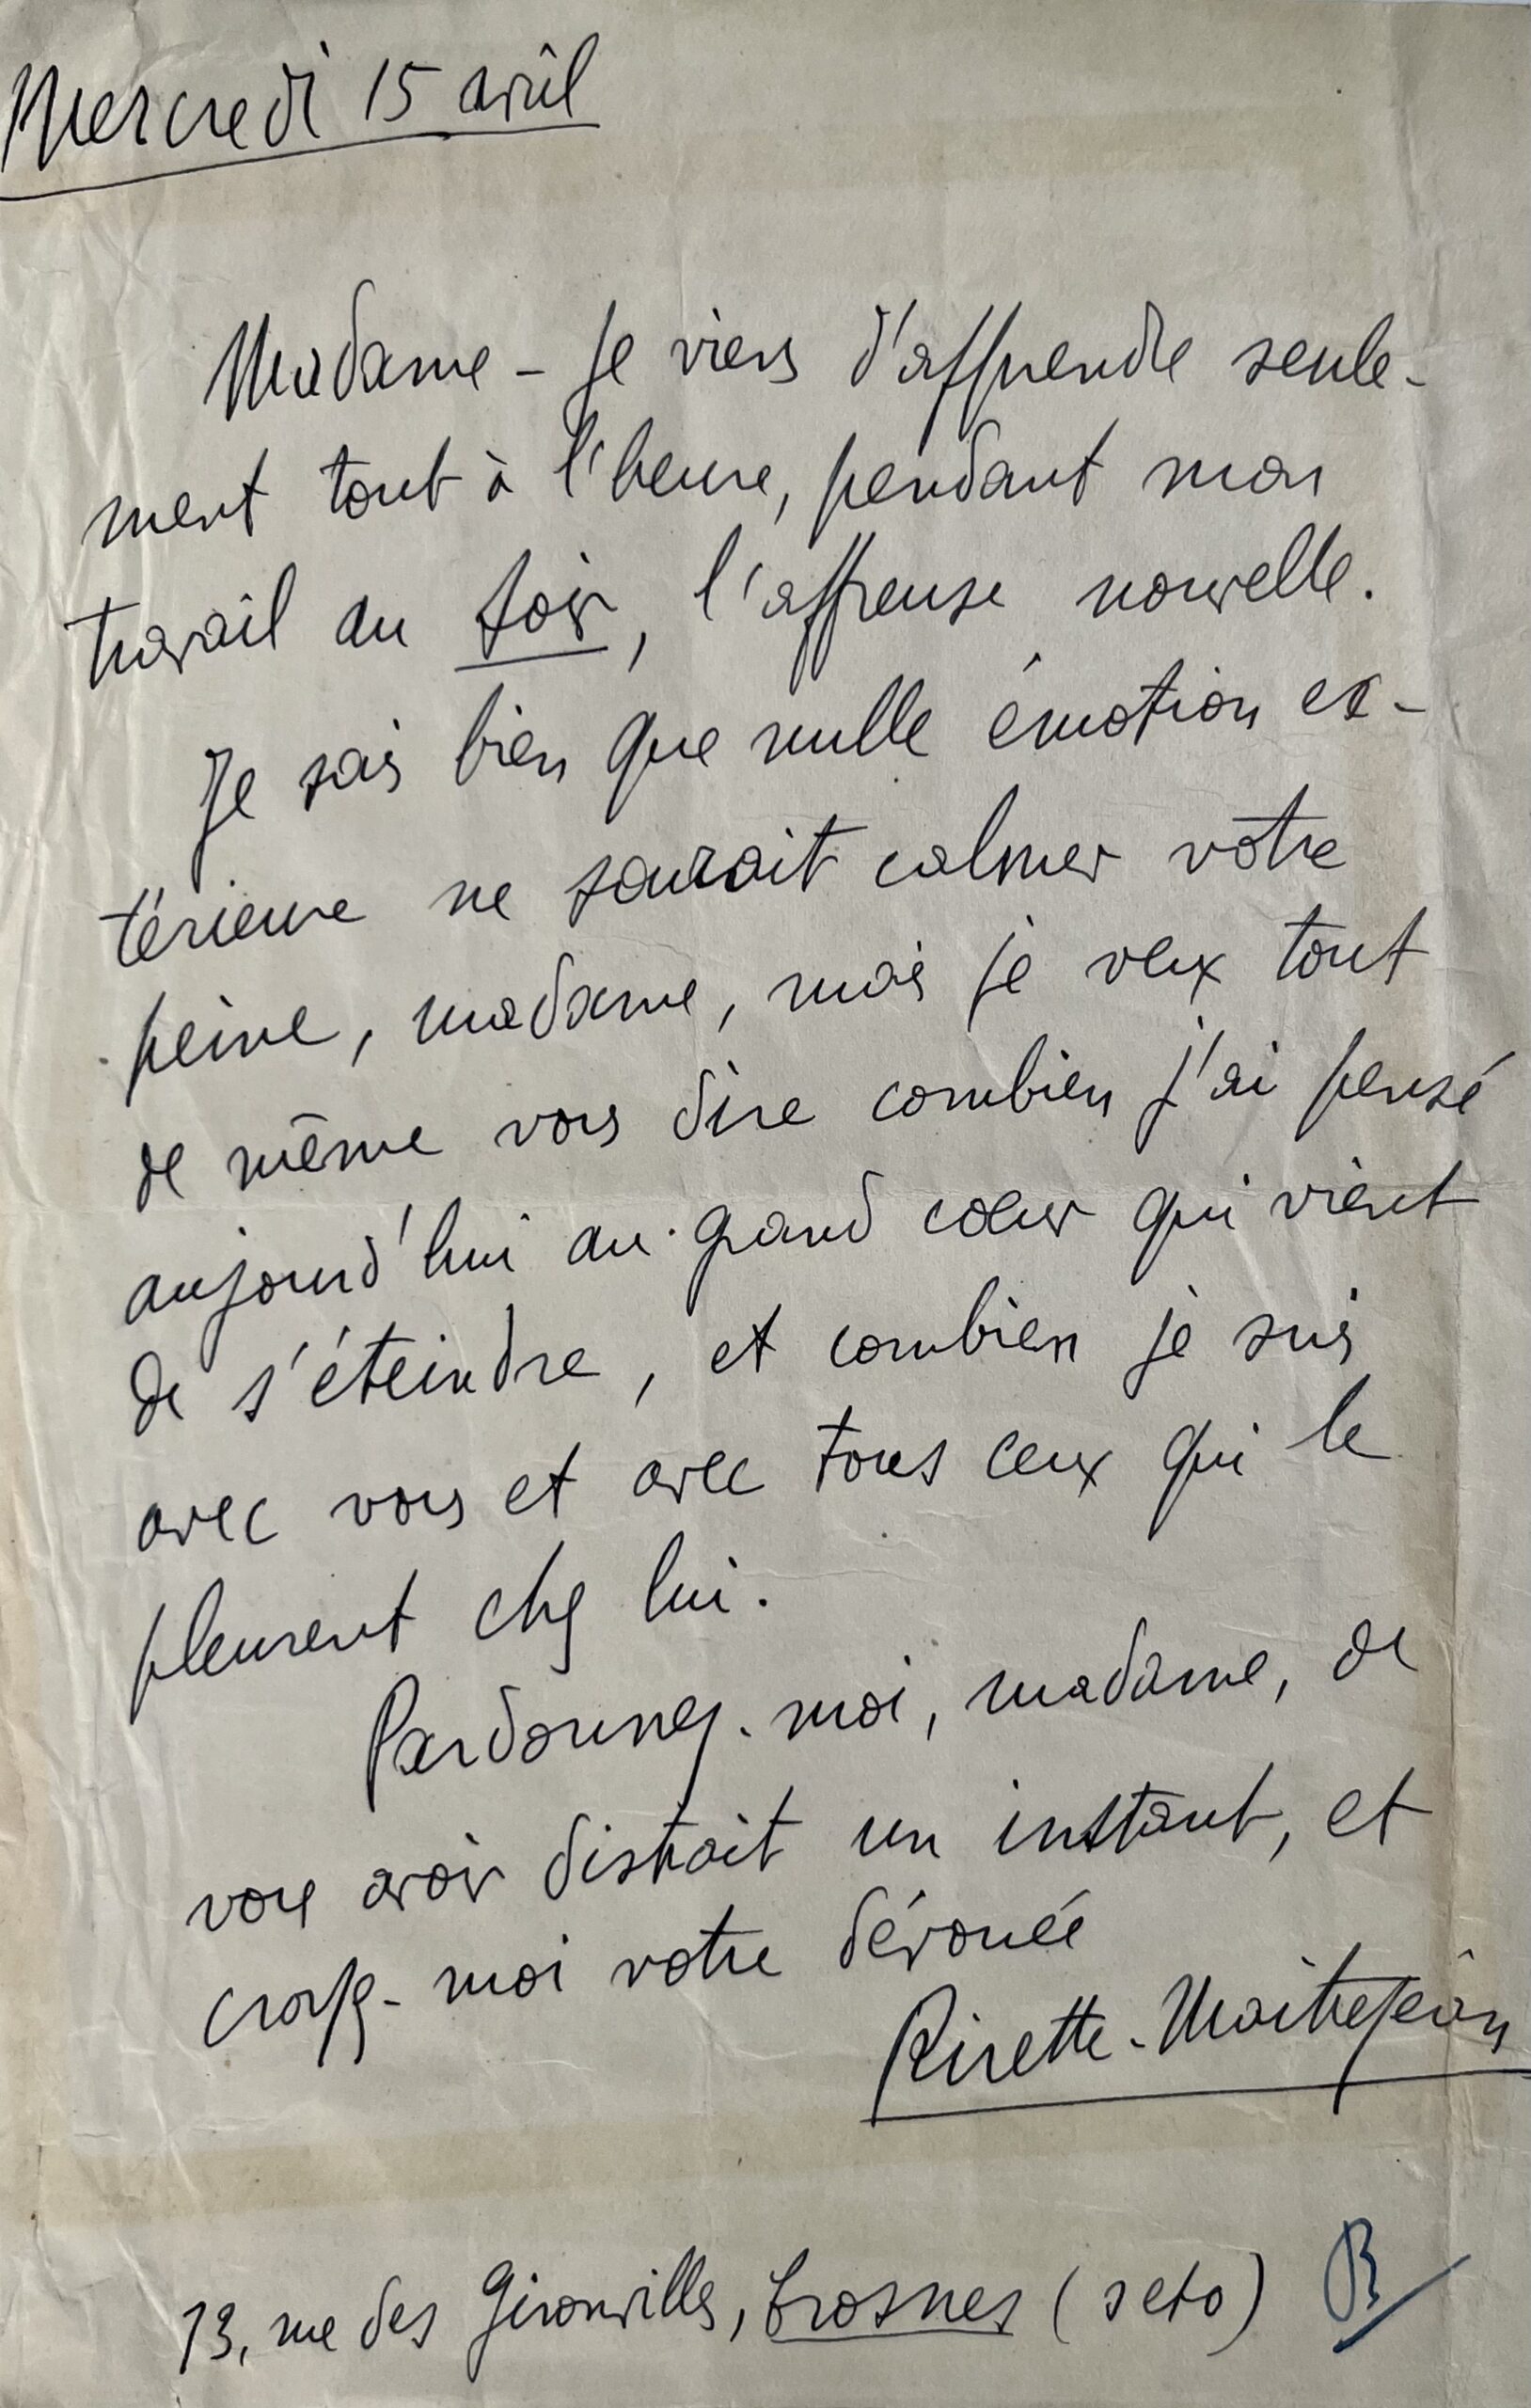 Mercredi 15 avril
Madame - Je viens d'apprendre seule-
ment tout à l'heure, pendant mon
travail du soir, l'affreuse nouvelle.
Je sais bien que nulle émotion ex-
térieure ne saurait calmer votre
peine, madame, mais je veux tout
de même vous dire combien j'ai pensé
aujourd'hui au grand cœur qui vient
de s'éteindre, et combien je suis
avec vous et avec tous ceux qui le
pleurent chez lui.
Pardonnez-moi, madame, de
vous avoir distrait un instant, et
croyez-moi votre dévouée
Rirette-Maitrejean
13, rue des Gironvilles, Brosnes (seto) B